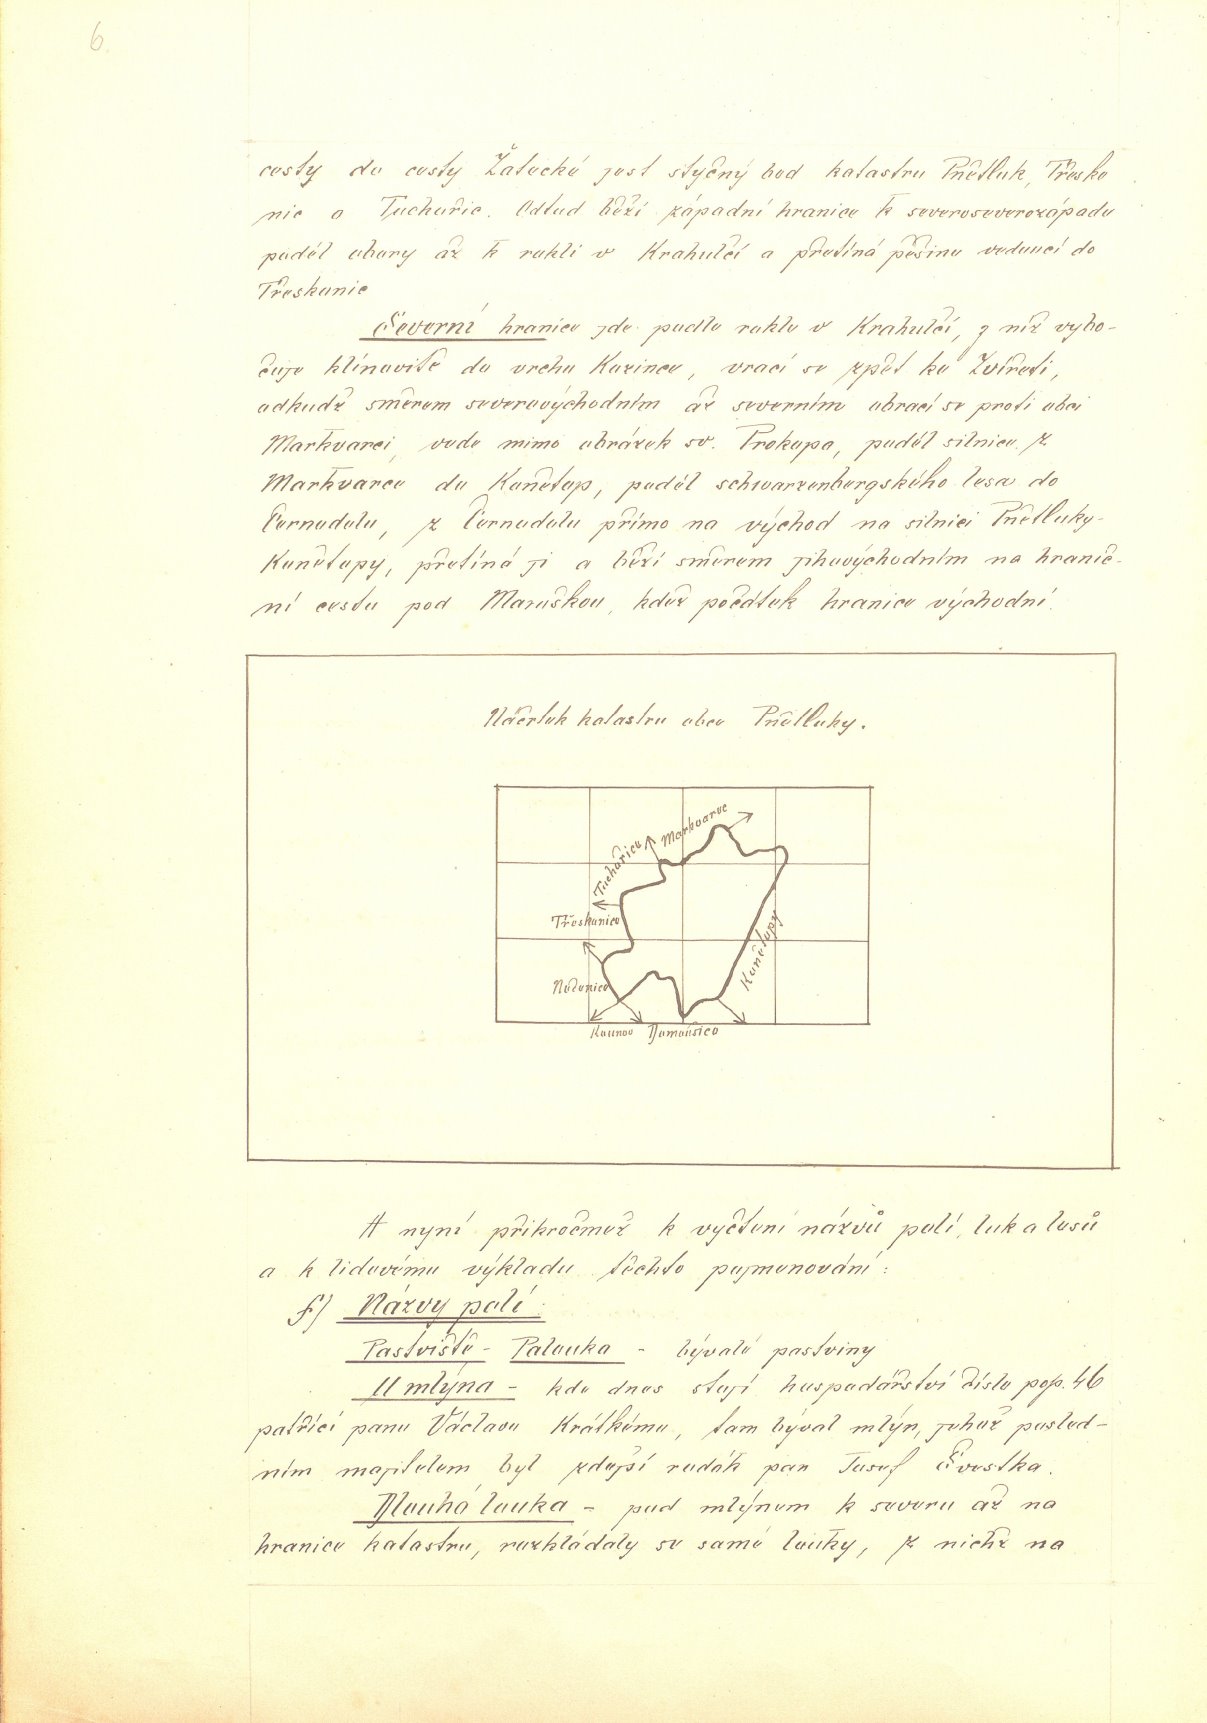 6.
cesty do cesty Žatecké jest styčný bod katastru Pnětluk, Třesko
nic a Tuchořic. Odtud běží západní hranice k severoseverozápadu
podél obory až k rokli v Krahulčí a protíná pěšinu vedoucí do
Třeskonic
Severní hranice jde podle rokle v Krahulčí, z níž vybo-
čuje klínovitě do vrchu Kozince, vrací se zpět ke Zvířeti,
odkudž směrem severovýchodním až severním obrací se proti obci
Markvarci, vede mimo obrázek sv. Prokopa, podél silnice z
Markvarce do Konětop, podél schwarzenbergského lesa do
Černodolu, z Černodolu přímo na východ na silnici Pnětluky-
Konětopy, protíná ji a běží směrem jihovýchodním na hranič-
ní cestu pod Maruškou, kdež počátek hranice východní.
Náčrtek katastru obce Pnětluky.
Markvarec
Tuchořice
Třeskonice
Konětopy
Nečenice
Kounov Domoušice
A nyní přikročmež k vyčtení názvů polí, luk a lesů
a k lidovému výkladu těchto pojmenování:
f) Názvy polí:
Pastviště - Palouka - bývalé pastviny
U mlýna - kde dnes stojí hospodářství číslo pop. 46
patřící panu Václavu Krátkému, tam býval mlýn, jehož posled-
ním majitelem byl zdejší rodák pan Josef Švestka.
Dlouhá louka - pod mlýnem k severu až na
hranice katastru, rozkládaly se samé louky, z nichž na